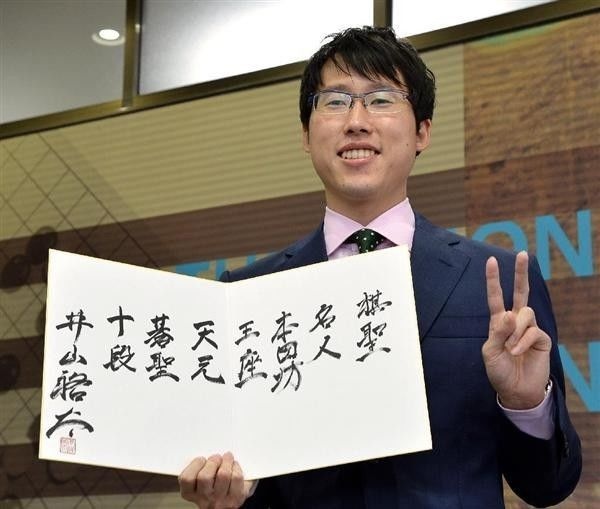 棋聖
名人
本因坊
王座
天元
碁聖
十段
井山裕太